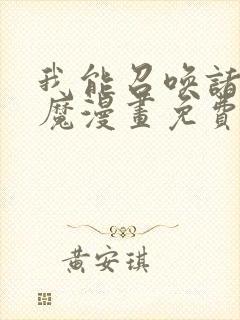 我能召唤諸
魔漫畫免費
黄安琪